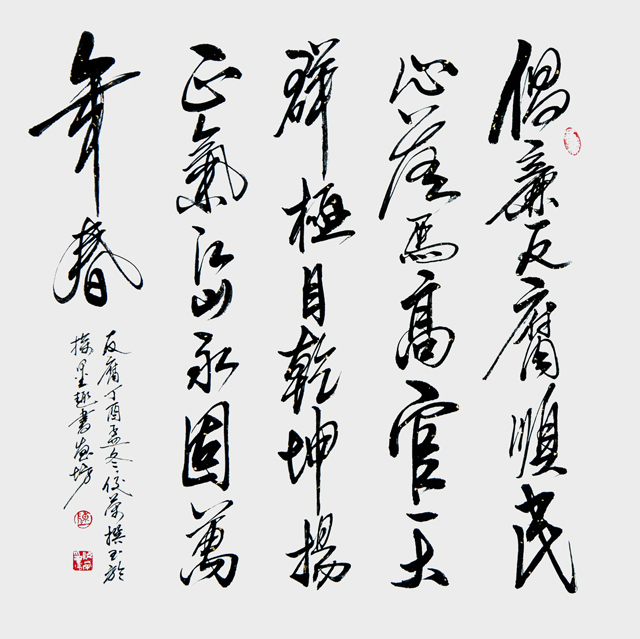 倡廉反腐順民
心落馬高官一大
群極目乾坤揚
正氣江山永固萬
年春
反腐丁酉孟冬俊荣撰书於
墨趣書画坊